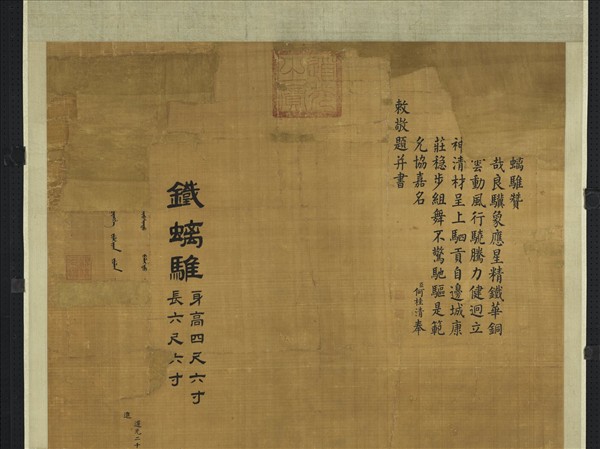 螭騅贊
哉良驥象應星精鐵華銅
雲動風行驍騰力健迥立
神清材呈上駟貢自邊城康
莊穩步組舞不驚馳驅是範
允協嘉名 臣何桂清奉
敕敬題并書
道光之寶
鐵螭騅
身高四尺六寸
長六尺六寸
道光二十
進